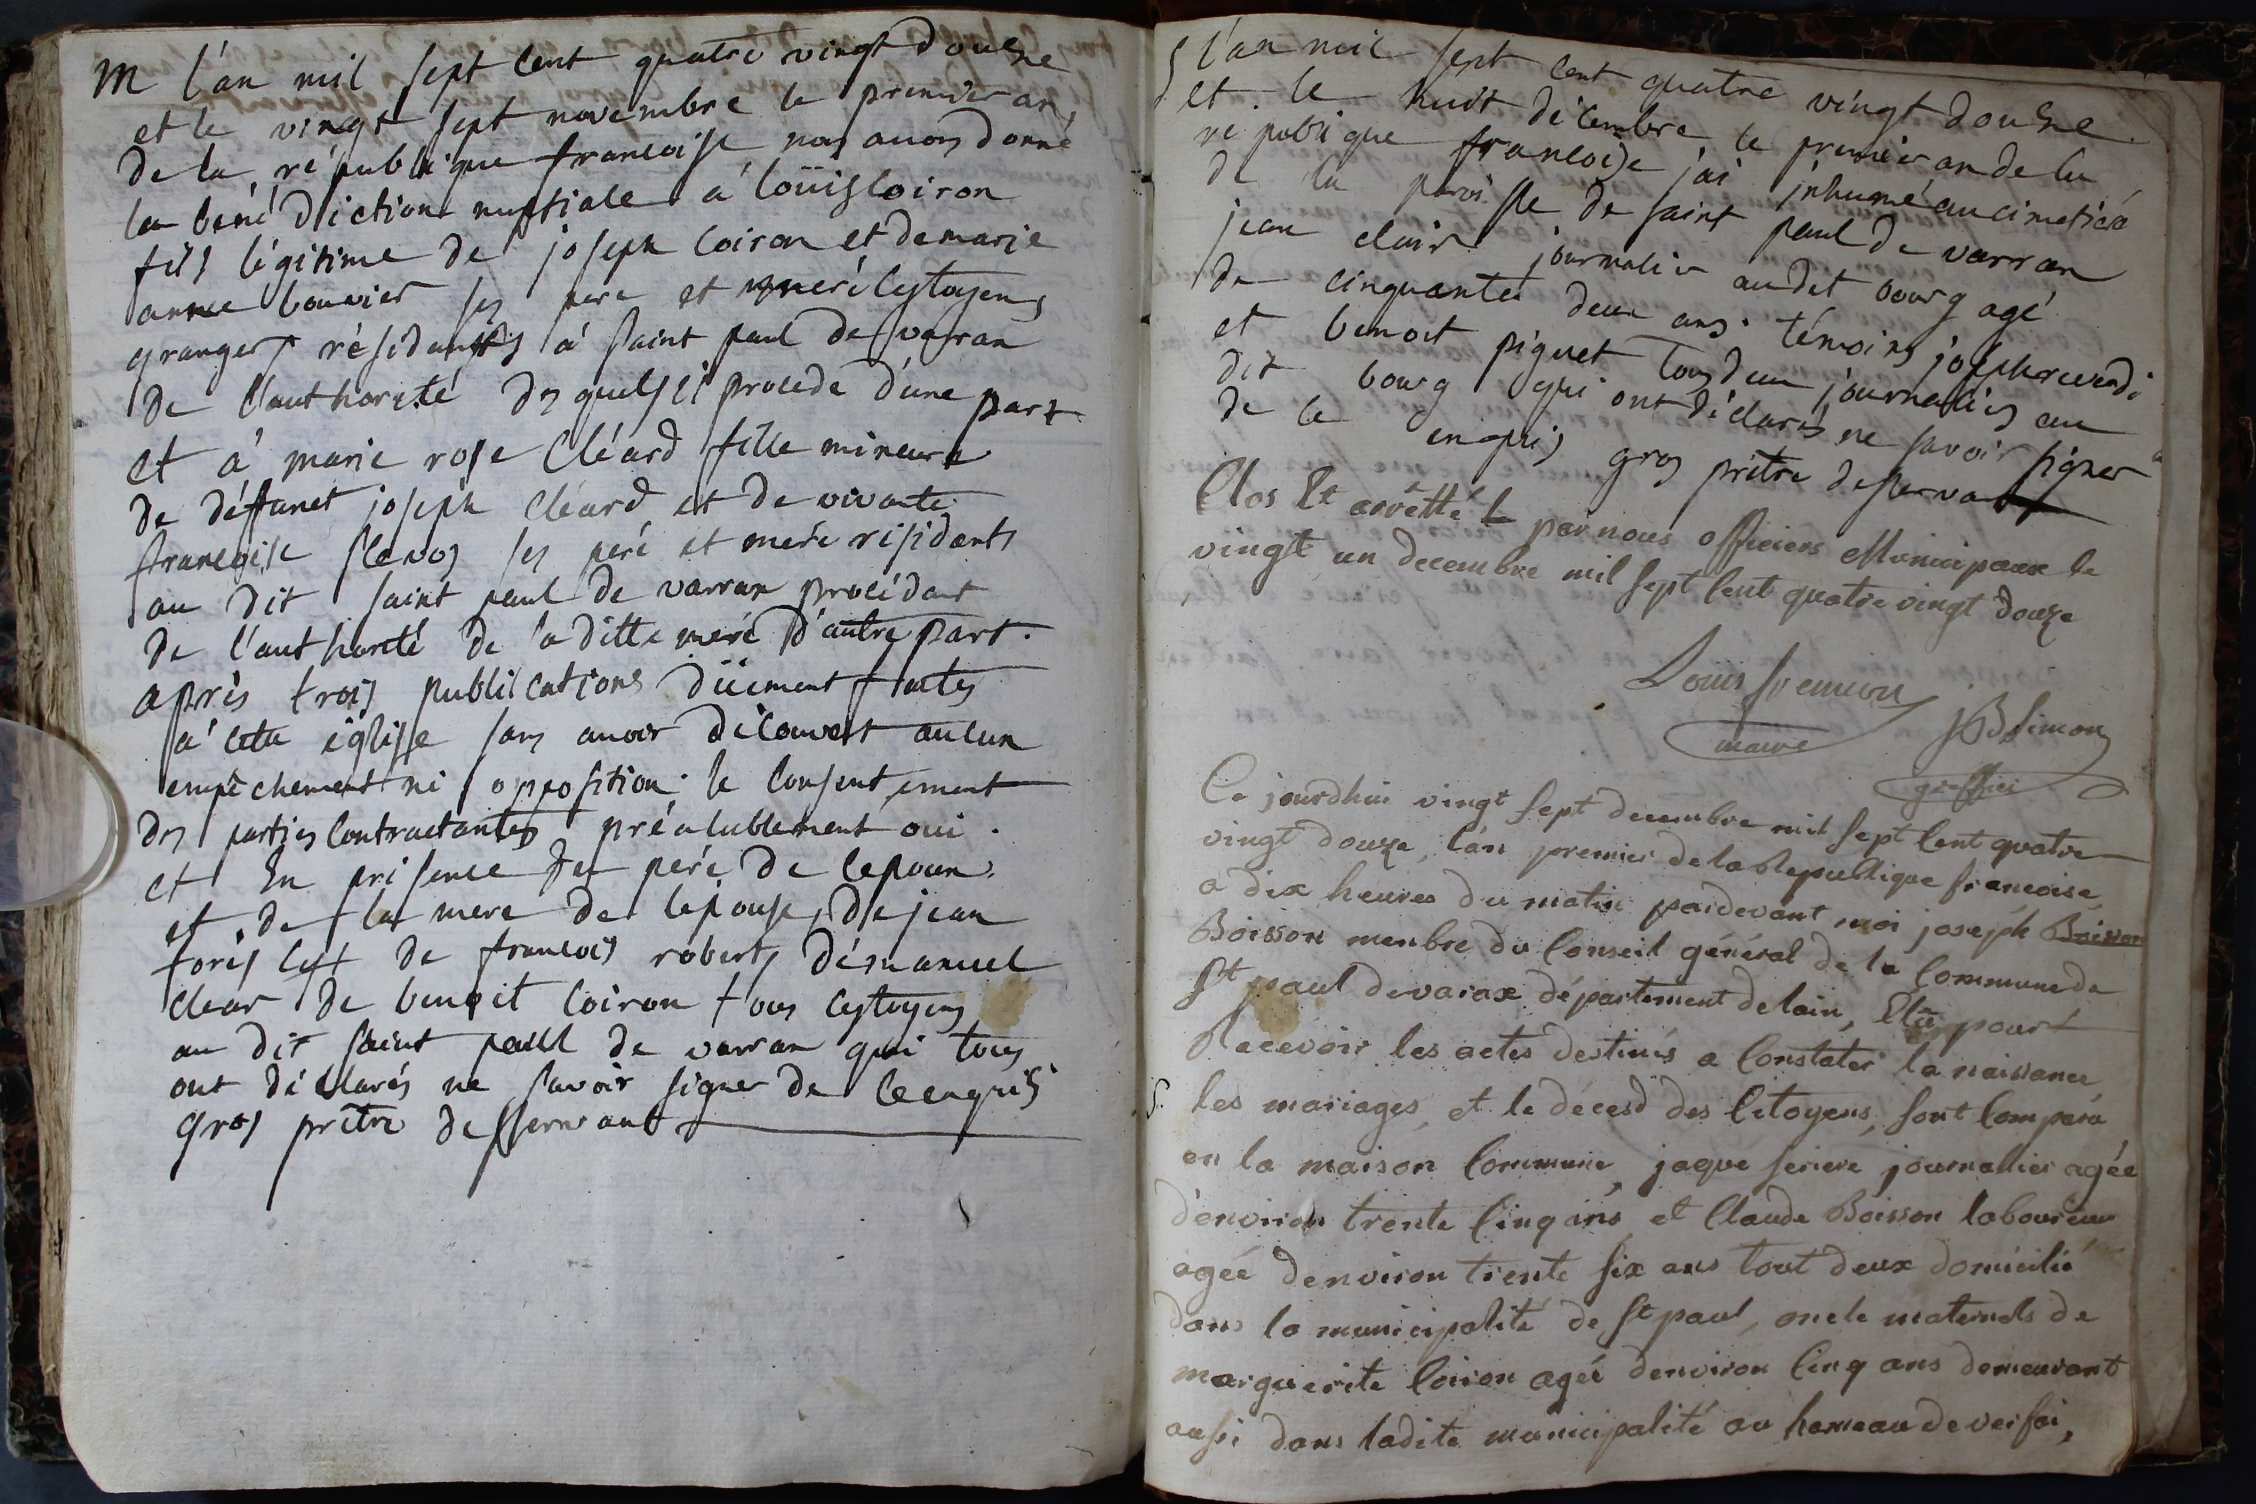 M l'an mil sept cent quatre vingt douse
et le vingt sept novembre le premier an
de la république francoise nous avons donné
la bénédiction nuptiale a loüis loiron
fils légitime de joseph loiron et de marie
anne bouvier ses pere et meré cytoyens
grangers résidants à saint paul de varran
de l'authorité desquels il procede d'une part
et à marie rose Cléard fille mineure
de déffunct joseph cléard et de vivante
francoise ses peré et meré résidants
au dit saint paul de varran procédant
de l'authorité de laditte meré d'autre part.
après trois publications düement faites
à cette église sans avoir découvert aucun
empêchement ni opposition. le consentement
des parties contractantes préalablement oui.
et En présence du peré de lepoux.
et de la mere de lépouse, de jean
de francois robert, démanuel
clear de benoit loiron tous cytoyens
au dit saint paul de varran qui tous
ont déclarés ne savoir signer de ce enquis
gros prêtre desservant
S l'an mil sept cent quatre vingt douse
et le huit décembre le premier an de la
république francoise j'ai inhumé au cimetière
de la paroisse de saint paul de varran
jean clair journalier au dit bourg agé
de cinquante deux ans. témoins joseph
et benoit piguet tous deux journaliers au
dit bourg qui ont déclarés ne savoir signer
de ce enquis gros prêtre desservant
Clos Et arrêtté par nous officiers Municipaux le
vingt un decembre mil sept cent quatre vingt douze
Louis
maire
JB Simon
greffier
Ce jourdhui vingt sept decembre mil sept cent quatre
vingt douze, l'an premier de la Republique francoise,
a dix heures du matin pardevant moi joseph Boisson
Boisson menbre du Conseil général de la Commune de
St paul devarax département de lain, Elû pour
Recevoir les actes destinés a Constater la naissance
les mariages, et le décesd des Citoyens, sont Comparu
en la maison Commune jaque feriere journalier agée
d'environ trente Cinq ans, et Claude Boisson laboureur
agée denviron trente six ans tout deux domicilié
dans la municipalité de St paul, oncle maternels de
marguerite loiron agée denviron Cinq ans demeurant
aussi dans ladite municipalité au hameau de verfai,